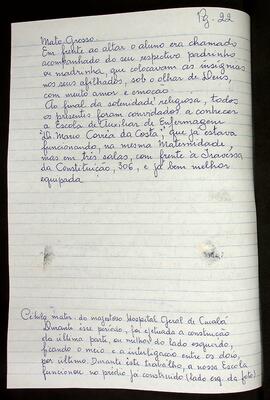 Pg. 22
Mato Grosso.
Em frente ao altar o aluno era chamado
acompanhado do seu respectivo padrinho
ou madrinha, que colocavam as insígnias
nos seus afilhados, sob o olhar de Deus,
com muito amor e emoção.
Ao final da solenidade religiosa, todos
os presentes foram convidados a conhecer
a Escola de Auxiliar de Enfermagem
"Dr. Mario Corrêa da Costa", que já estava
funcionando, na mesma Maternidade,
mas em três salas, com frente à Travessa
da Constituição, 306, e já bem melhor
equipada.
mater. do majestoso Hospital Geral de Cuiabá
Durante esse período, foi efetuada a construção
da última parte, ou melhor, do lado esquerdo,
ficando o meio e a interligação entre os dois,
por último. Durante este trabalho, a nossa Escola
funcionou no prédio já construído (lado esq. da foto)